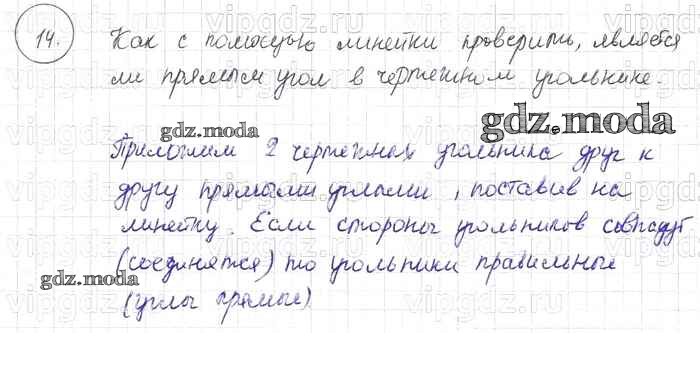 14. Как с помощью линейки проверить, является
ли прямым угол в чертежном угольнике.
gdz.moda
gdz.moda
Приложим 2 чертежных угольника друг к
другу прямыми углами, поставив на
линейку. Если стороны угольников совпадут
gdz.moda
(соединятся) то угольники правильные
(углы прямые)